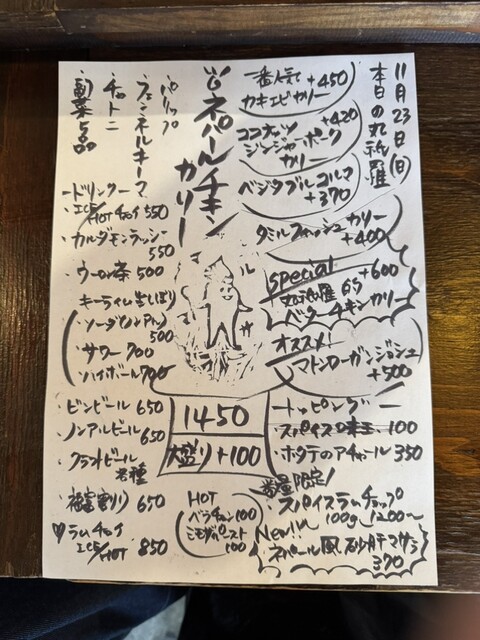 11月23日(日)
本日の丸祇羅
一番人気 +450
カキエビカリー
+420
ココナッツ
ジンジャーポーク
カリー
ベジタブルコルマ
+370
タミルフィッシュカリー
+400
special +600
65
バターチキンカリー
オススメ!
マトンローガンジョシュ
+500
ネパールチキン
カリー
パリップ
フェンネルキーマ
チャトニ
副菜5品
1450
大盛り+100
ードリンクー
・ICE/HOT チャイ 550
・カルダモンラッシー
550
・ウーロン茶 500
キーライム生しぼり
・ソーダ(ノンアル)
500
・サワー 700
・ハイボール 700
・ビンビール 650
・ノンアルビール
650
・クラフトビール
各種
650
♡ラムチャイ
ICE/HOT 850
HOT
100
100
ートッピングー
・スパイス味玉 100
・ホタテのアチャール 350
数量限定!
・スパイスラムチョップ
100g 1200〜
New!!
ネパール風砂肝マサラ
370